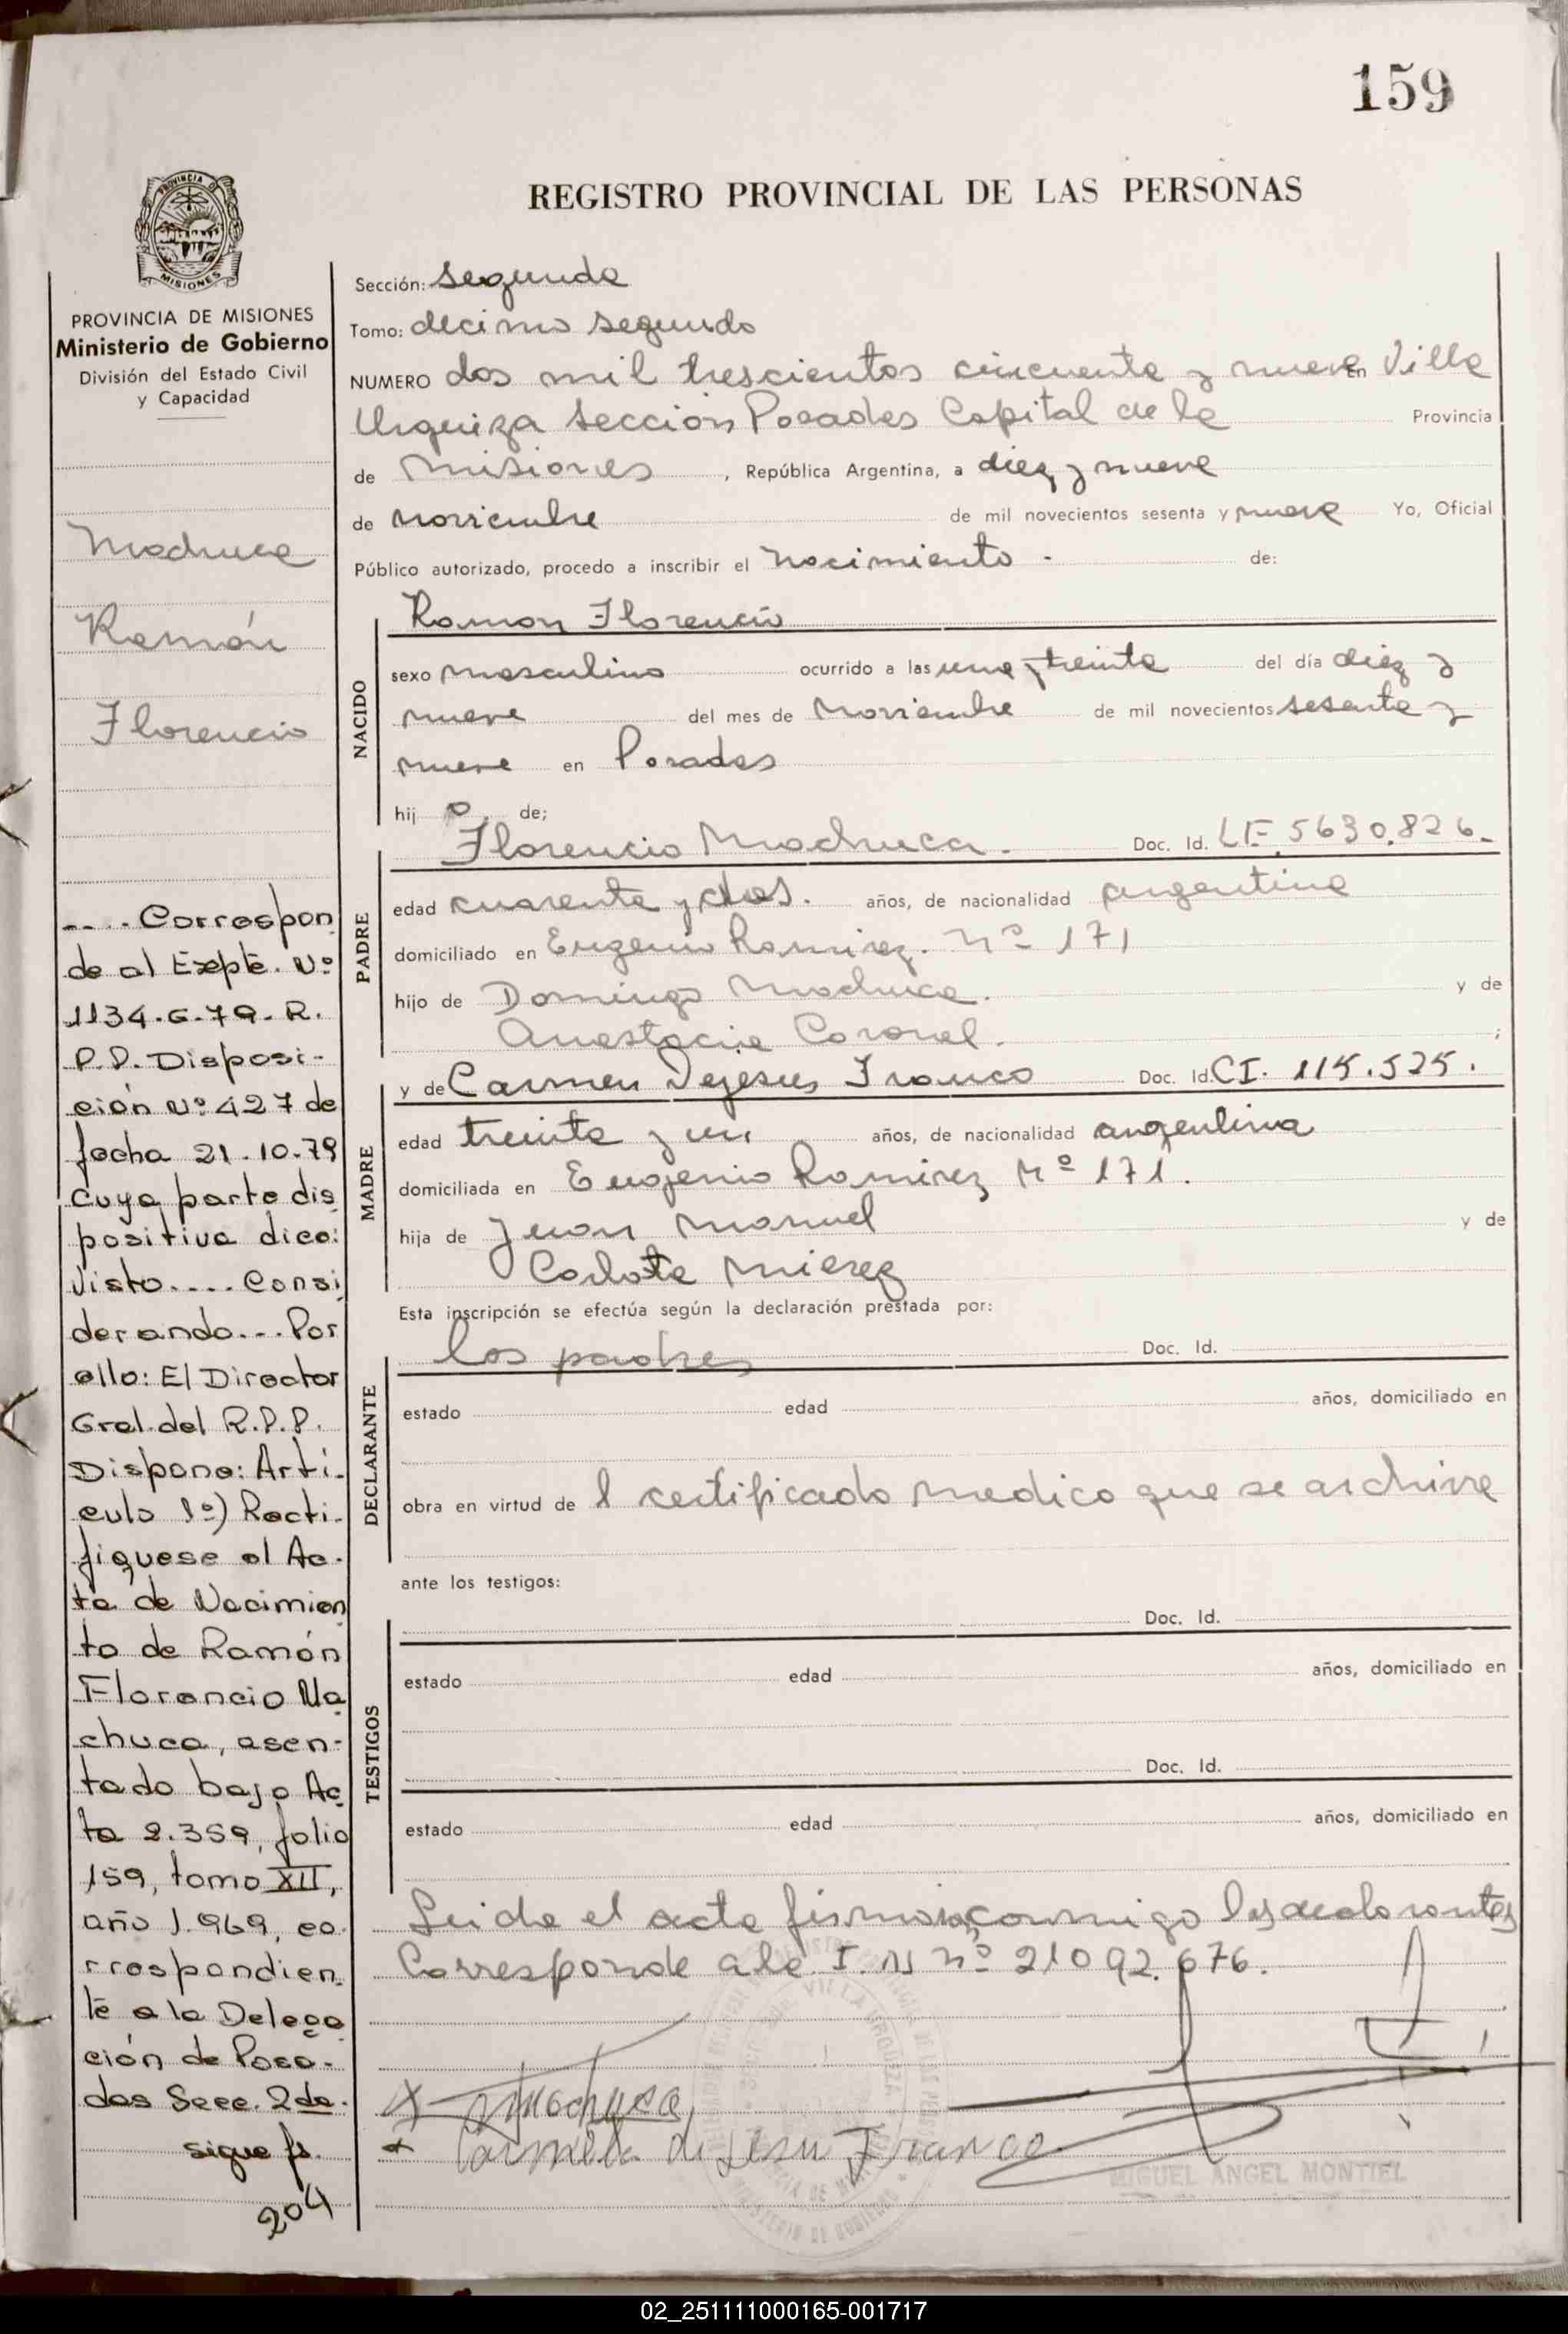 159
REGISTRO PROVINCIAL DE LAS PERSONAS
PROVINCIA DE MISIONES
PROVINCIA DE MISIONES
Ministerio de Gobierno
División del Estado Civil
y Capacidad
Machuca
Ramón
Florencio
.... Correspon
de al Expte. Nº
1134-G-79-R.
P.P. Disposi-
ción Nº 427 de
fecha 21-10-79
cuya parte dis
positiva dice:
Visto.... Consi
derando... Por
ello: El Director
Gral. del R.P.P.
Dispone: Artí-
culo 1º) Recti-
fíquese el Ac-
ta de Nacimien
to de Ramón
Florencio Ma
chuca, asen-
tado bajo Ac
ta 2.359, folio
159, tomo XII,
año 1.969, co
rrespondien
te a la Delega
ción de Posa-
das Secc. 2da.
sigue fs.
204
Sección: Segunda
Tomo: decimo segundo
NUMERO dos mil trescientos cincuenta y nueve En Villa
Urquiza Sección Posadas Capital de la Provincia
de Misiones, República Argentina, a diez y nueve
de Noviembre de mil novecientos sesenta y nueve Yo, Oficial
Público autorizado, procedo a inscribir el Nacimiento - de:
NACIDO
Ramon Florencio
sexo masculino ocurrido a las una y treinta del día diez y
nueve del mes de Noviembre de mil novecientos sesenta y
nueve en Posadas
hij o de;
PADRE
Florencio Machuca. Doc. Id. LE 5630.826.
edad cuarenta y dos. años, de nacionalidad argentina
domiciliado en Eugenio Ramirez. Nº 171
hijo de Domingo Machuca. y de
Anastacia Coronel. ;
MADRE
y de Carmen Dejesus Franco Doc. Id. CI. 115.525.
edad treinta y un años, de nacionalidad argentina
domiciliada en Eugenio Ramirez Nº 171.
hija de Juan Manuel y de
Carlota Mierez
Esta inscripción se efectúa según la declaración prestada por:
DECLARANTE
los padres Doc. Id.
estado edad años, domiciliado en
obra en virtud de l certificado medico que se archiva
ante los testigos:
TESTIGOS
Doc. Id.
estado edad años, domiciliado en
Doc. Id.
estado edad años, domiciliado en
Leida el acta firman conmigo los declarantes
Corresponde a la I. N nº 21092.676.
Machuca
Carmen de Jesu Franco
MIGUEL ANGEL MONTIEL
02_251111000165-001717